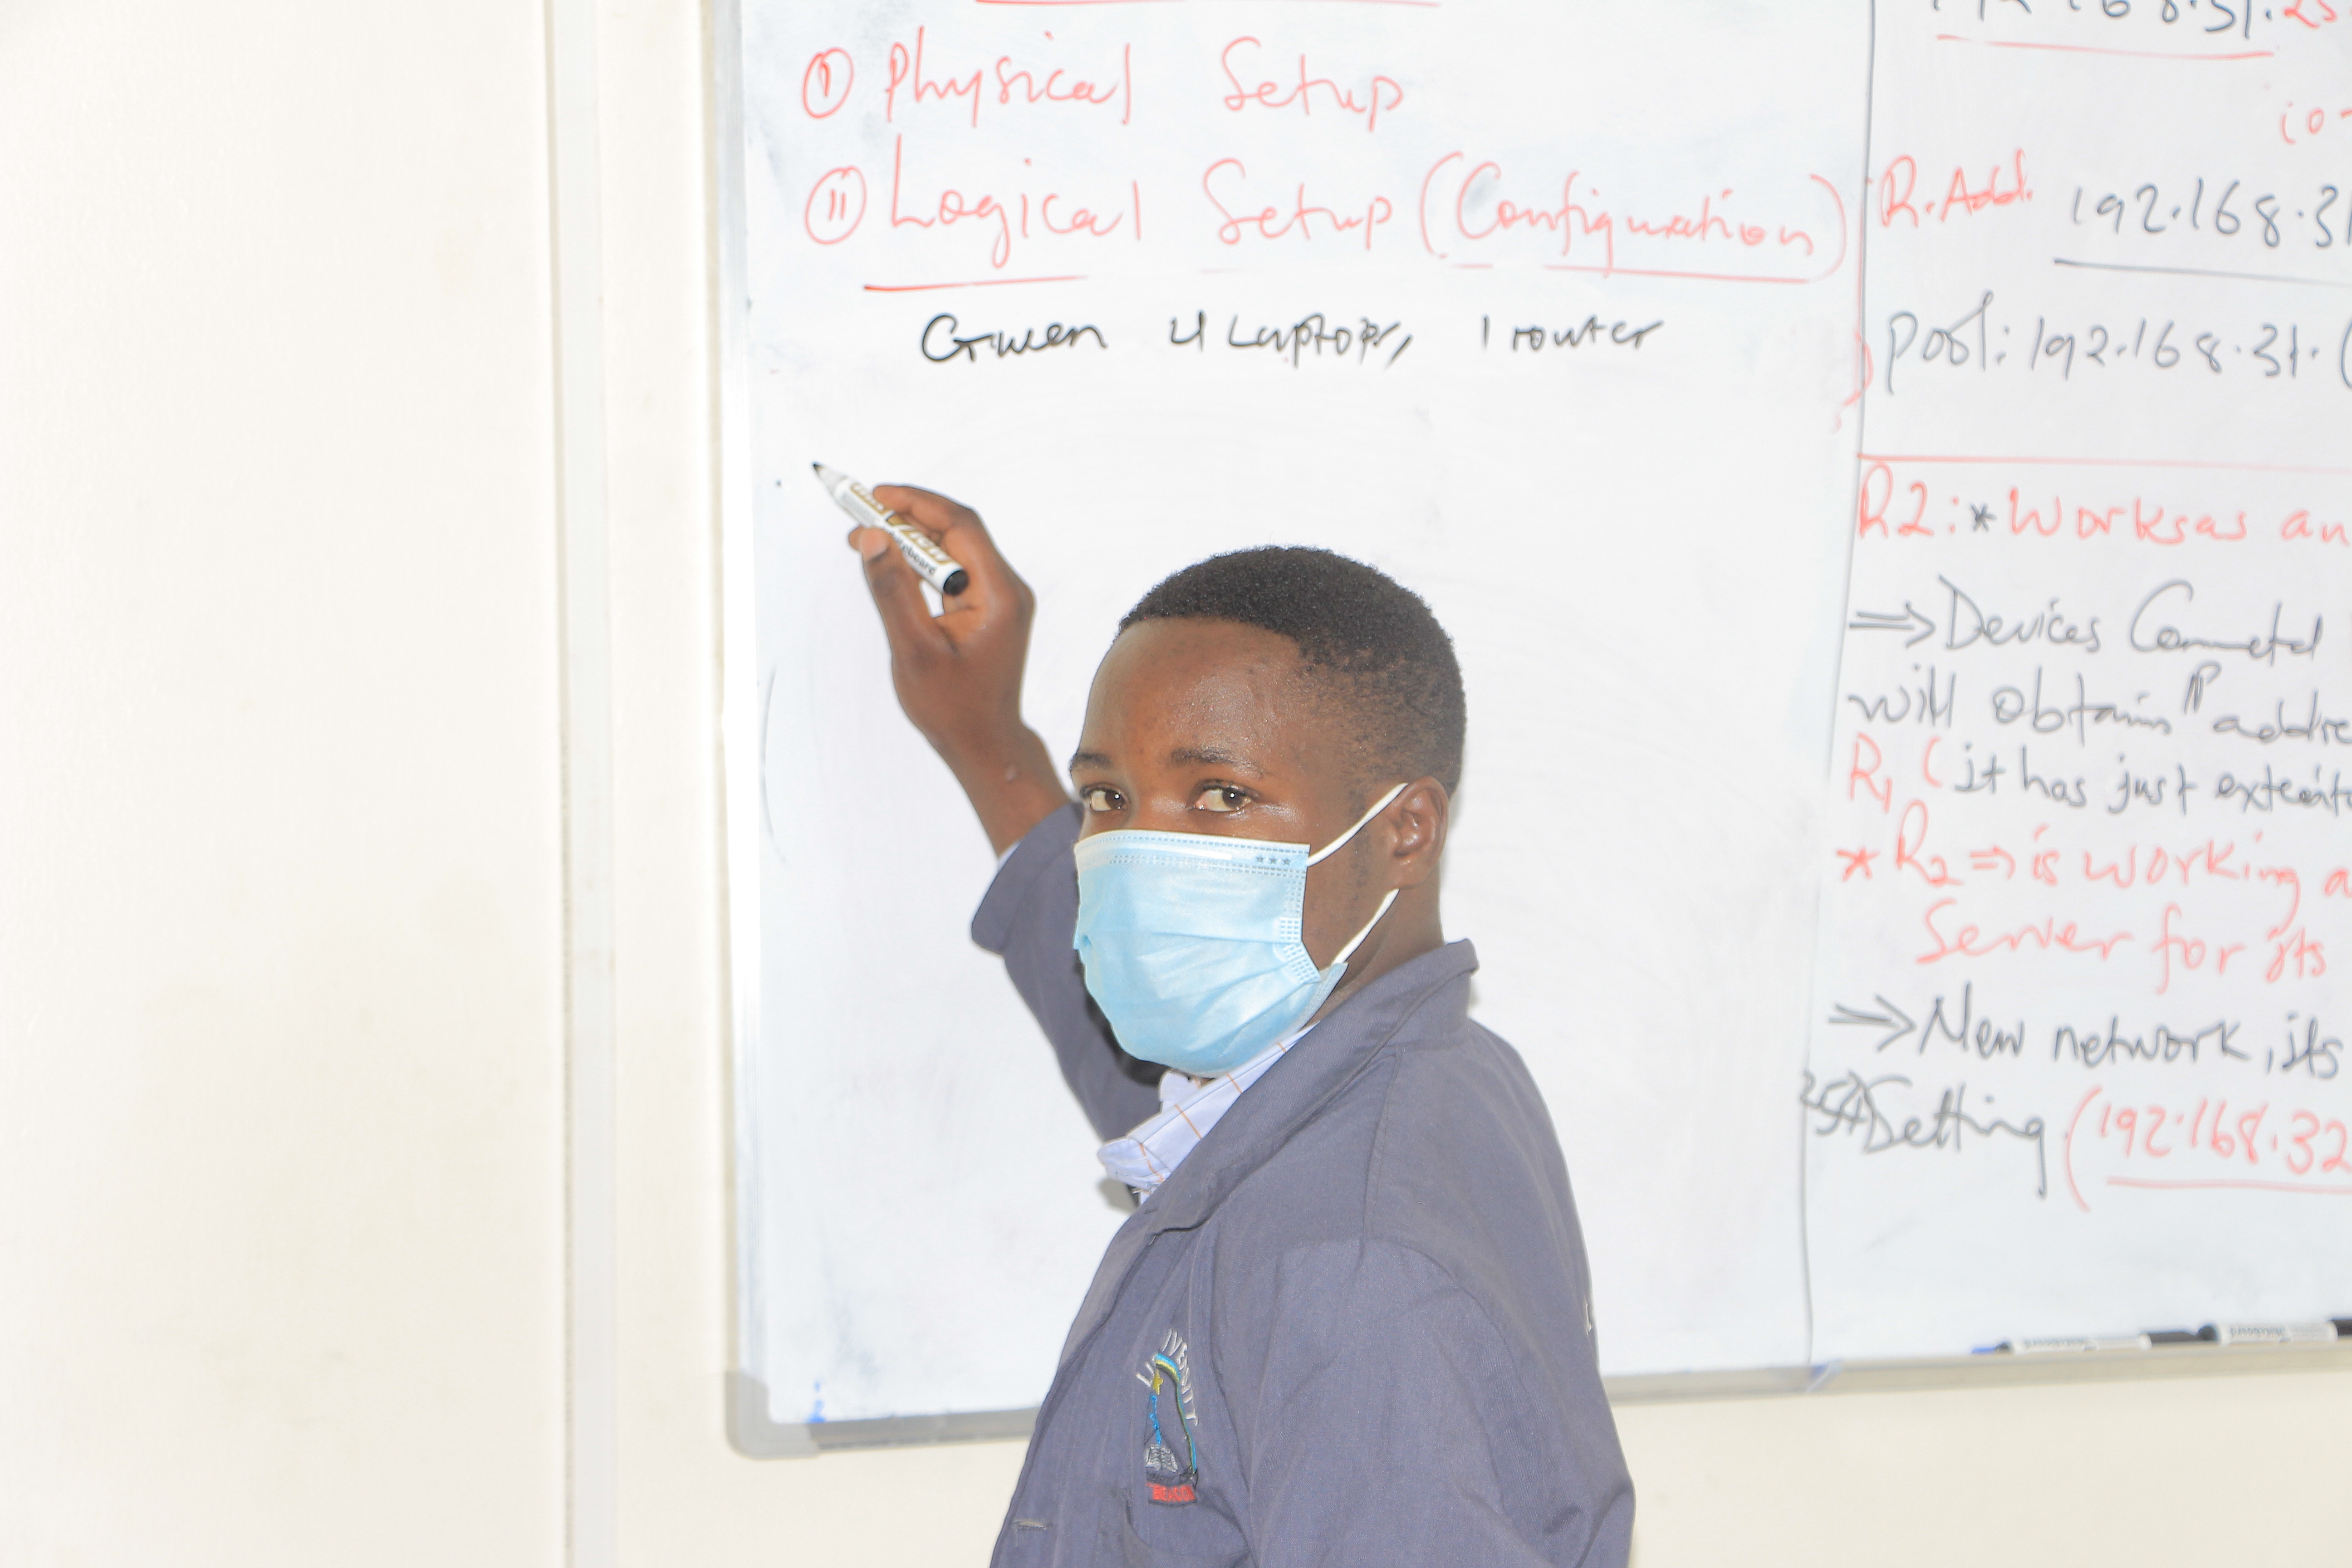 I Physical Setup
II Logical Setup (Configuration)
Given 4 Laptops, 1 router
192.168.31.25
R.Add. 192.168.31
Pool: 192.168.31. (
R2: * Works as an
⇒ Devices Connected
will obtain IP addre
R1 (it has just
* R2 ⇒ is working a
Server for its
⇒ New network, its
Setting (192.168.32